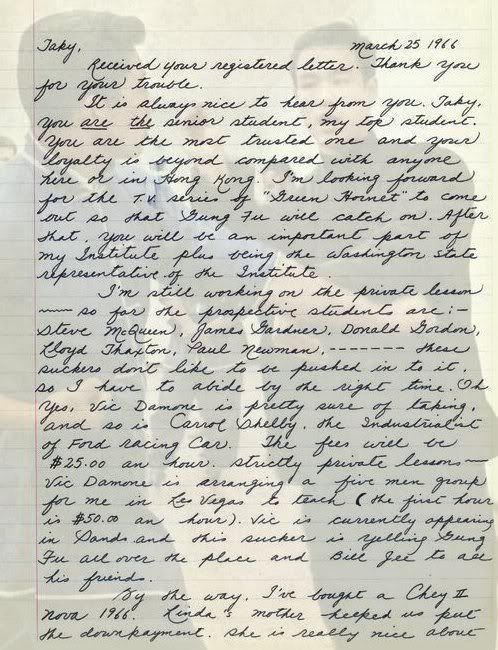 Taky,
March 25 1966
Received your registered letter. Thank you
for your trouble.
It is always nice to hear from you. Taky,
you are the senior student, my top student.
You are the most trusted one and your
loyalty is beyond compared with anyone
here or in Hong Kong. I'm looking forward
for the T.V. series of "Green Hornet" to come
out so that Gung Fu will catch on. After
that, you will be an important part of
my Institute plus being the Washington State
representative of the Institute.
I'm still working on the private lesson
—— so far the prospective students are:—
Steve McQueen, James Gardner, Donald Gordon,
Lloyd Thaxton, Paul Newman, ------- these
suckers don't like to be pushed in to it,
so I have to abide by the right time. Oh
Yes, Vic Damone is pretty sure of taking,
and so is Carrol Shelby, the Industrialist
of Ford racing Car. The fees will be
$25.00 an hour. strictly private lessons—
Vic Damone is arranging a five men group
for me in Las Vegas to teach (the first hour
is $50.00 an hour). Vic is currently appearing
in Sands and this sucker is yelling Gung
Fu all over the place and Bill Jee to all
his friends.
By the way, I've bought a Chey II
Nova 1966. Linda's mother helped us put
the downpayment. She is really nice about